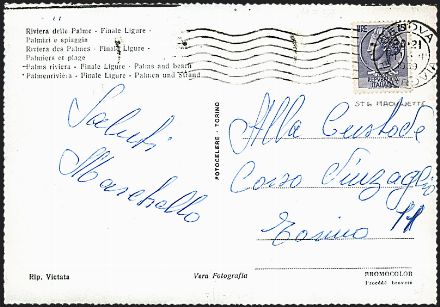 Riviera delle Palme - Finale Ligure -
Palmizi e spiaggia
Riviera des Palmes - Finale Ligure -
Palmiers et plage
Palms riviera - Finale Ligure - Palms and beach
Palmenriviera - Finale Ligure - Palmen und Strand
GENOVA
21
LIRE
ITALIANE
ST 6 MACCHIETTE
Saluti
Maschallo
FOTOCELERE - TORINO
Alla Custode
Corso Vinzaglio
Torino 11
Rip. Vietata
Vera Fotografia
PROMOCOLOR
Procédé breveté